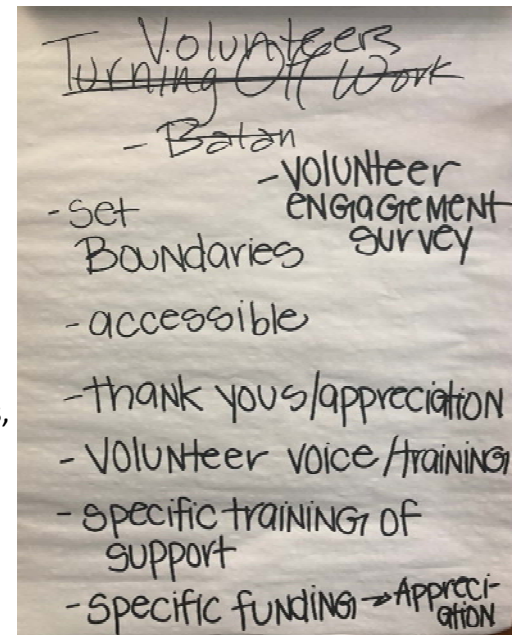 Volunteers
Turning Off Work
- Batan
- Volunteer
engagement
survey
- Set
Boundaries
- accessible
- thank yous/appreciation
- Volunteer voice/training
- specific training of
support
- specific funding → Appreci-
ation